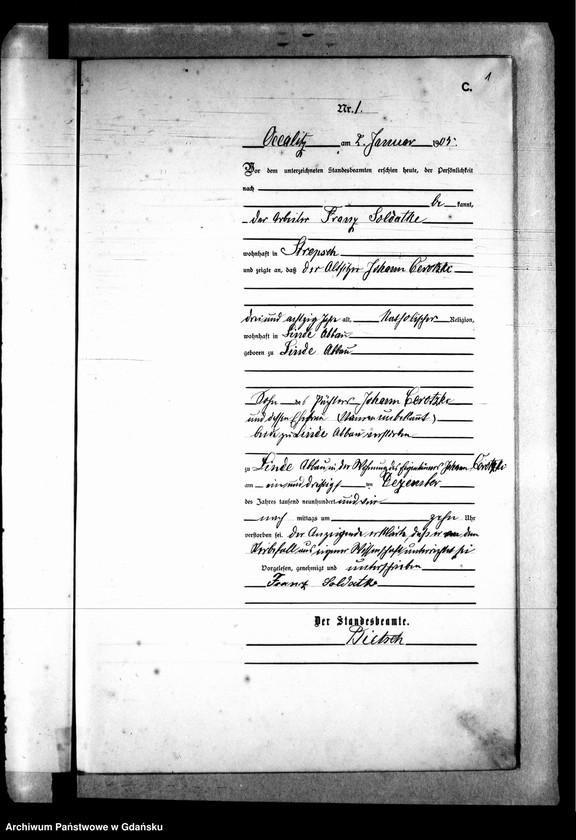 C.
1
Nr. 1.
Occalitz am 2. Januar 190
Vor dem unterzeichneten Standesbeamten erschien heute, der Persönlichkeit
nach
be kannt,
der Arbeiter Franz Soldatke
wohnhaft in Strepsch
und zeigte an, daß der Altsitzer Johann Cerotzke
drei und achtzig Jahre alt, katholischer Religion,
wohnhaft in Linde Abbau
geboren zu Linde Abbau
Sohn des Pächters Johann Cerotzke
und dessen Ehefrau (Namen unbekannt)
beide zu Linde Abbau verstorben
zu Linde Abbau, in der Wohnung des Eigentümers Johann
am ein und dreißigsten Dezember
des Jahres tausend neunhundert und
nach mittags um zehn Uhr
verstorben sei. Der Anzeigende erklärte, daß er von dem
Sterbefall aus eigener Wissenschaft unterrichtet sei
Vorgelesen, genehmigt und unterschrieben
Franz Soldatke
Der Standesbeamte.
Dietsch
Archiwum Państwowe w Gdańsku